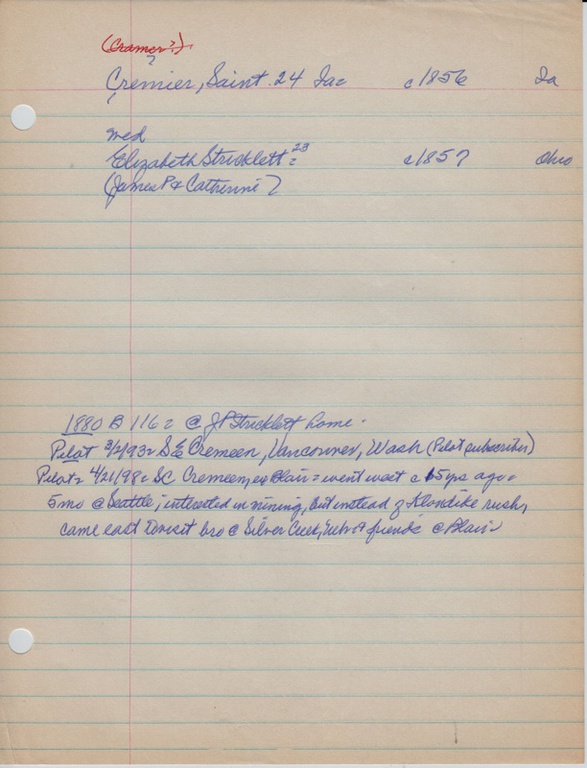 (Cramer?)
?
Cremier, Saint. 24 Ia= c1856 Ia
med
Elizabeth Stricklett = 23 c1857 Ohio
(James P & Catherine)
1880 B 116= @ JP Stricklett home.
Pilot 3/2/93= S E Cremeen, Vancouver, Wash (Pilot subscriber)
Pilot= 4/21/98= SC Cremeen, ex Blair = went west c 15 yrs ago=
5 mo @ Seattle, interested in mining, but instead of Klondike rush,
came east to visit bro @ Silver Creek, Nebr & friends @ Blair=